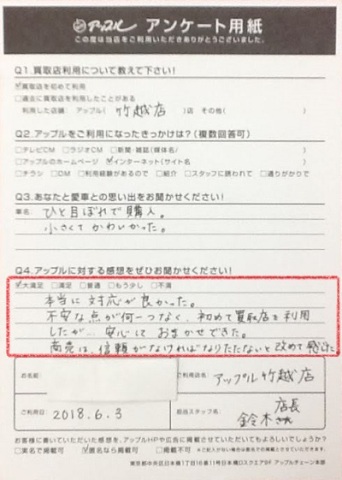 アップル アンケート用紙
この度は当店をご利用いただきありがとうございました。
Q1.買取店利用について教えて下さい!
☑買取店を初めて利用
□過去に買取店を利用したことがある
利用した店舗: アップル( 竹越店 )店 その他( )
Q2.アップルをご利用になったきっかけは?(複数回答可)
□テレビCM □ラジオCM □新聞・雑誌(媒体名/ )
□アップルのホームページ ☑インターネット(サイト名 )
□チラシ □DM □利用経験があるので □紹介 □スタッフに誘われて □通りがかりで
Q3.あなたと愛車との思い出をお聞かせください!
車名:
ひと目ぼれで購入。
小さくてかわいかった。
Q4.アップルに対する感想をぜひお聞かせください!
☑大満足 □満足 □普通 □もう少し □不満
本当に対応が良かった。
不安な点が何一つなく、初めて買取店を利用
したが…安心して おまかせできた。
商売は、信頼がなければなりたたないと改めて感じた。
お名前
ご利用店名: アップル竹越店
ご利用日 2018.6.3
担当スタッフ名: 店長 鈴木さん
お客様に書いていただいた感想を、アップルHPや広告に掲載させていただいてもよろしいでしょうか?
□実名で掲載可 ☑匿名なら掲載可 □掲載不可
東京都中央区日本橋1丁目16番11号日本橋Dスクエア5F アップルチェーン本部